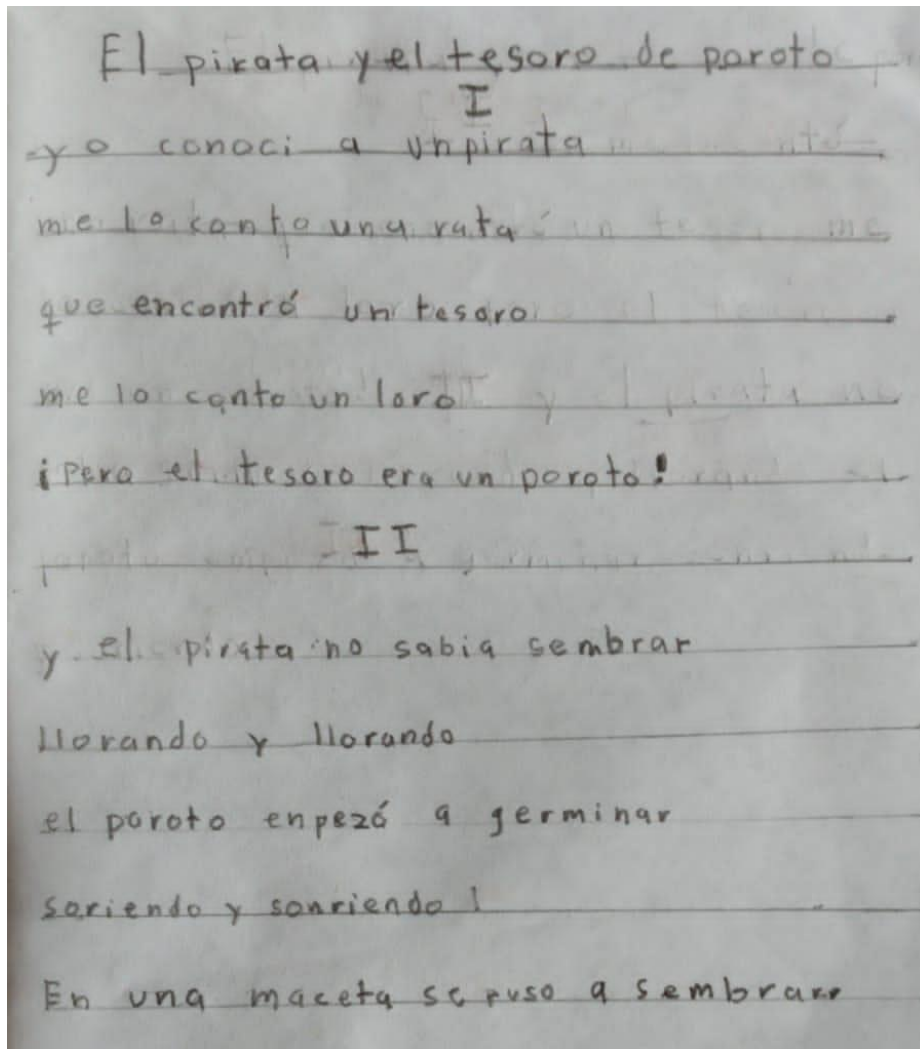 El pirata y el tesoro de poroto
I
yo conoci a un pirata
me lo conto una rata
que encontró un tesoro
me lo conto un loro
¡Pero el tesoro era un poroto!
II
y el pirata no sabia sembrar
llorando y llorando
el poroto enpezó a germinar
soriendo y sonriendo!
En una maceta se puso a sembrar